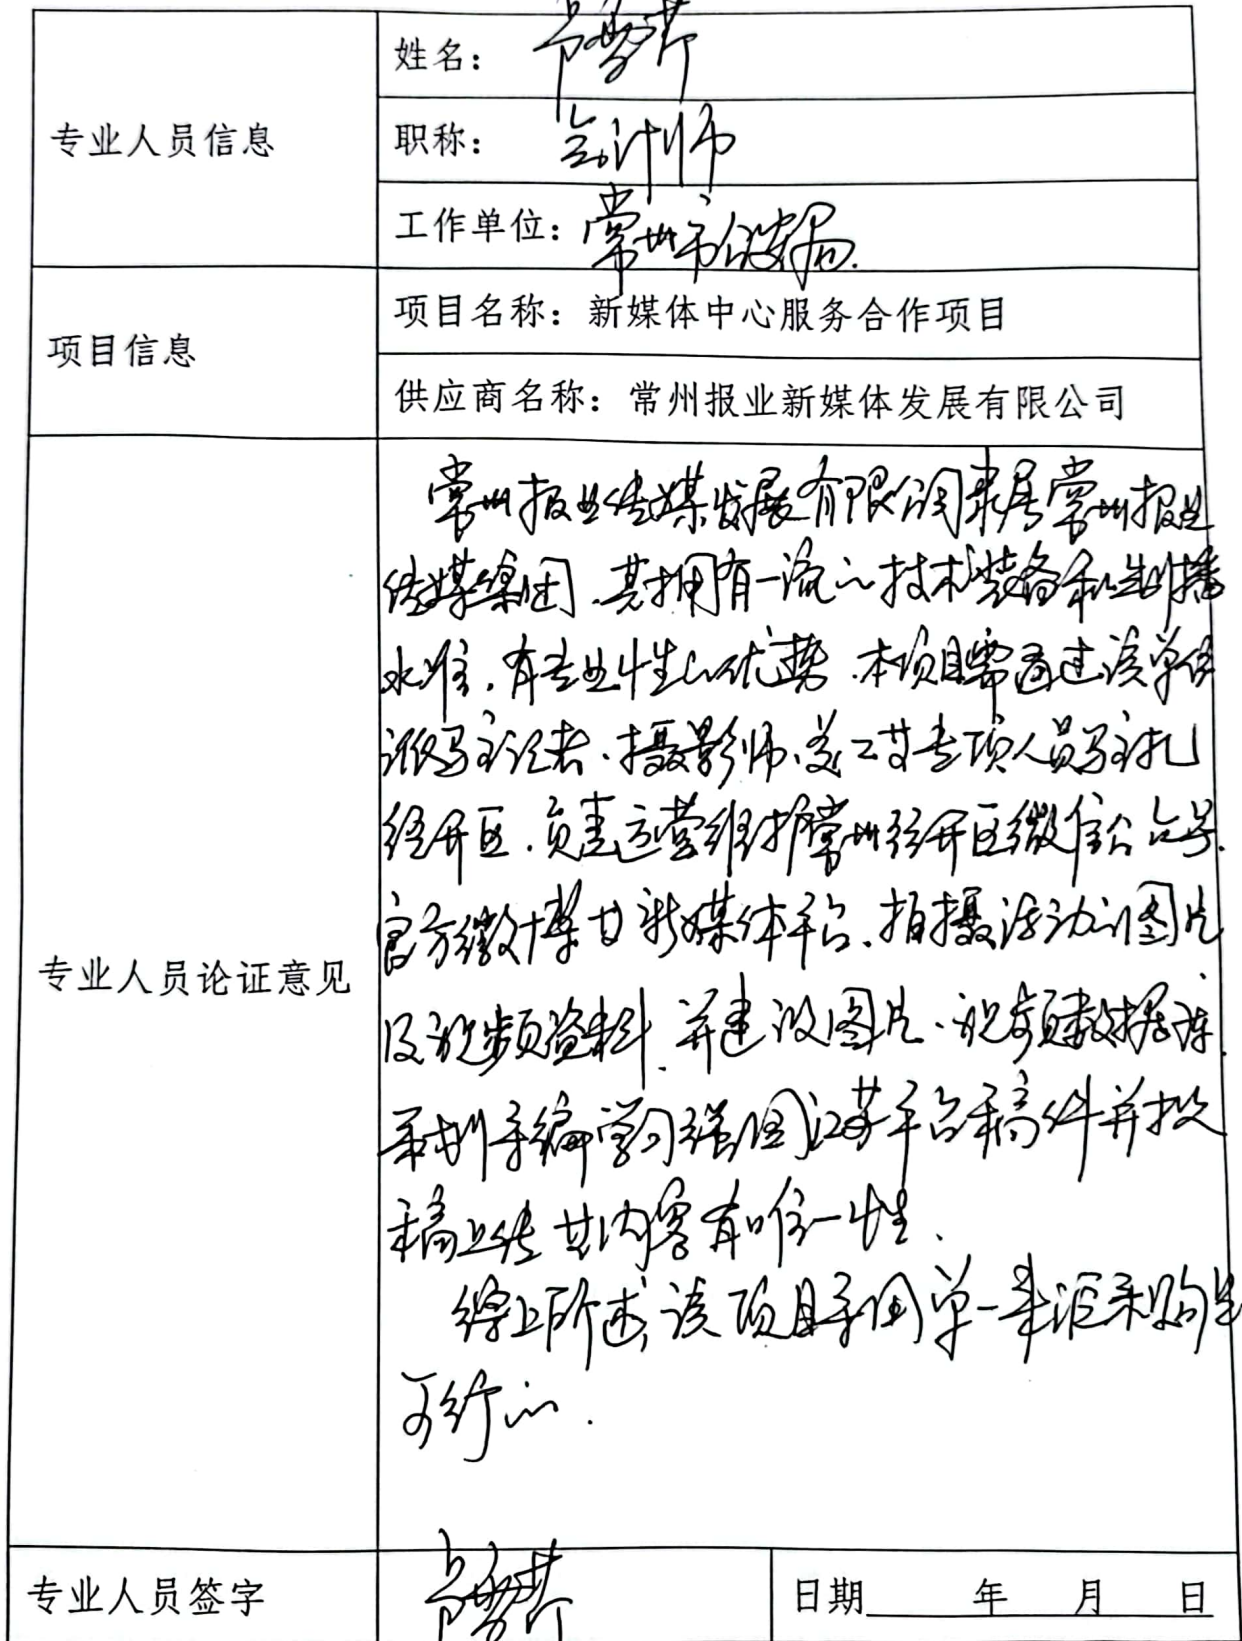 姓名：
专业人员信息
职称： 会计师
工作单位：常州市财政局.
项目信息
项目名称：新媒体中心服务合作项目
供应商名称：常州报业新媒体发展有限公司
专业人员论证意见
常州报业传媒发展有限公司隶属常州报业
传媒集团、其拥有一流的技术装备和制播
水准，有专业性的优势．本项目需通过该单位
派驻记者、摄影师、美工等专项人员驻扎
经开区，负责运营维护常州经开区微信公众号、
官方微博等新媒体平台、拍摄活动的图片
及视频资料，并建设图片、视频数据库、
采制手编学习强国江苏平台稿件并投
稿上传 其内容有唯一性、
综上所述，该项目采用单一来源采购是
可行的．
专业人员签字
日期 年 月 日